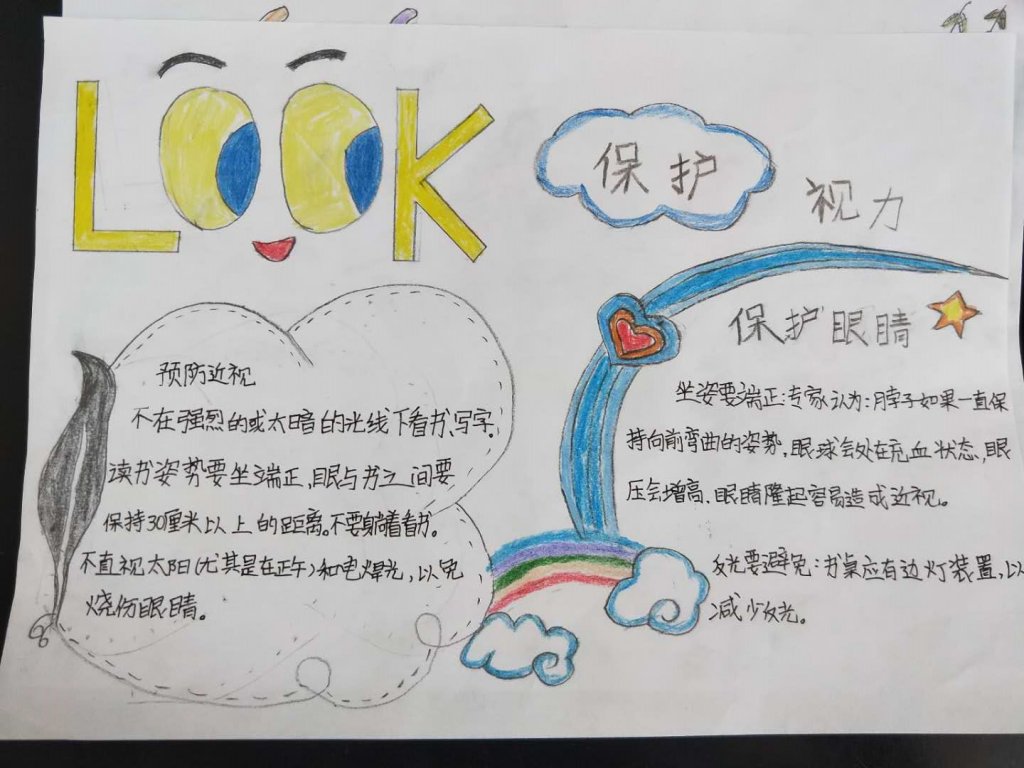 LOOK
保护
视力
预防近视
不在强烈的或太暗的光线下看书、写字。
读书姿势要坐端正,眼与书之间要
保持30厘米以上的距离。不要躺着看书。
不直视太阳(尤其是在正午)和电焊光,以免
烧伤眼睛。
保护眼睛
坐姿要端正:专家认为:脖子如果一直保
持向前弯曲的姿势,眼球会处在充血状态,眼
压会增高、眼睛隆起容易造成近视。
反光要避免:书桌应有边灯装置,以
减少反光。